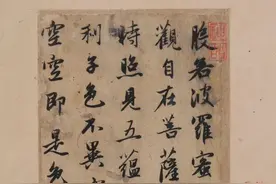 般若波羅蜜
觀自在菩薩
時照見五蘊
利子色不異
空空即是色